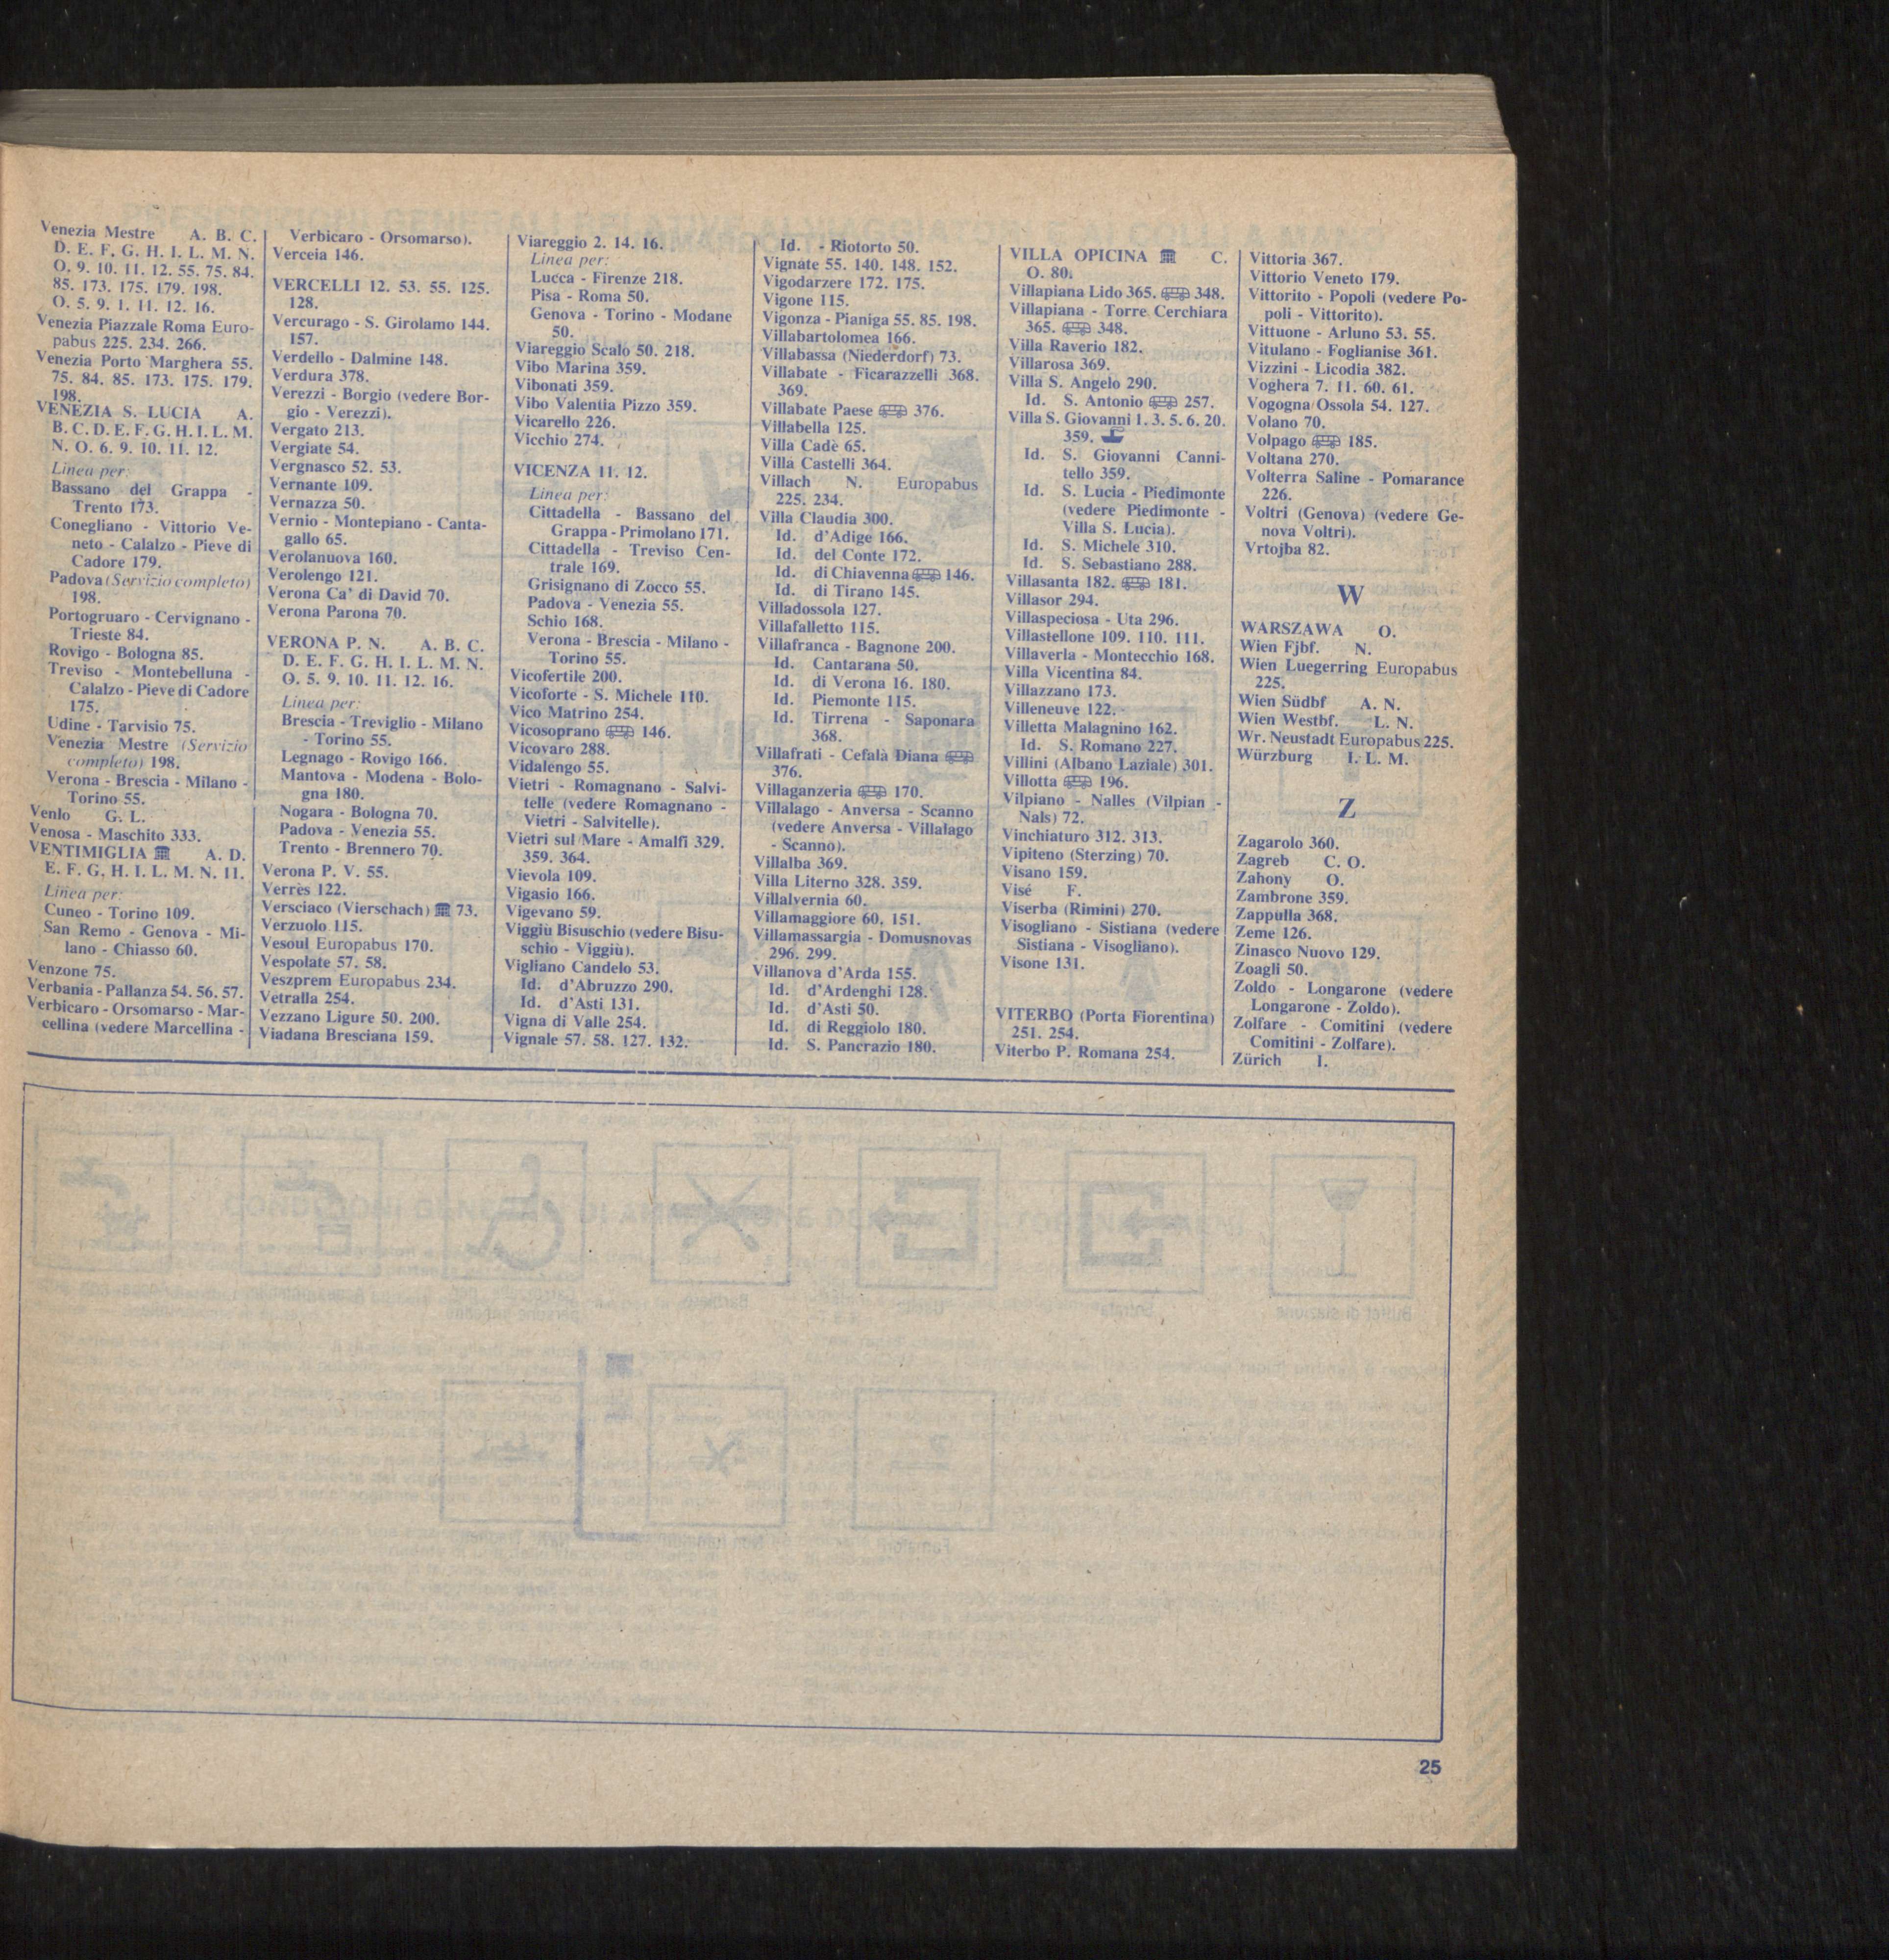 Venezia Mestre A. B. C.
D. E. F. G. H. I. L. M. N.
O. 9. 10. 11. 12. 55. 75. 84.
85. 173. 175. 179. 198.
O. 5. 9. 1. 11. 12. 16.
Venezia Piazzale Roma Euro-
pabus 225. 234. 266.
Venezia Porto Marghera 55.
75. 84. 85. 173. 175. 179.
198.
VENEZIA S. LUCIA A.
B. C. D. E. F. G. H. I. L. M.
N. O. 6. 9. 10. 11. 12.
Linea per:
Bassano del Grappa -
Trento 173.
Conegliano - Vittorio Ve-
neto - Calalzo - Pieve di
Cadore 179.
Padova (Servizio completo)
198.
Portogruaro - Cervignano -
Trieste 84.
Rovigo - Bologna 85.
Treviso - Montebelluna -
Calalzo - Pieve di Cadore
175.
Udine - Tarvisio 75.
Venezia Mestre (Servizio
completo) 198.
Verona - Brescia - Milano -
Torino 55.
Venlo G. L.
Venosa - Maschito 333.
VENTIMIGLIA A. D.
E. F. G. H. I. L. M. N. 11.
Linea per:
Cuneo - Torino 109.
San Remo - Genova - Mi-
lano - Chiasso 60.
Venzone 75.
Verbania - Pallanza 54. 56. 57.
Verbicaro - Orsomarso - Mar-
cellina (vedere Marcellina -
Verbicaro - Orsomarso).
Verceia 146.
VERCELLI 12. 53. 55. 125.
128.
Vercurago - S. Girolamo 144.
157.
Verdello - Dalmine 148.
Verdura 378.
Verezzi - Borgio (vedere Bor-
gio - Verezzi).
Vergato 213.
Vergiate 54.
Vergnasco 52. 53.
Vernante 109.
Vernazza 50.
Vernio - Montepiano - Canta-
gallo 65.
Verolanuova 160.
Verolengo 121.
Verona Ca' di David 70.
Verona Parona 70.
VERONA P. N. A. B. C.
D. E. F. G. H. I. L. M. N.
O. 5. 9. 10. 11. 12. 16.
Linea per:
Brescia - Treviglio - Milano
- Torino 55.
Legnago - Rovigo 166.
Mantova - Modena - Bolo-
gna 180.
Nogara - Bologna 70.
Padova - Venezia 55.
Trento - Brennero 70.
Verona P. V. 55.
Verrès 122.
Versciaco (Vierschach) 73.
Verzuolo 115.
Vesoul Europabus 170.
Vespolate 57. 58.
Veszprem Europabus 234.
Vetralla 254.
Vezzano Ligure 50. 200.
Viadana Bresciana 159.
Viareggio 2. 14. 16.
Linea per:
Lucca - Firenze 218.
Pisa - Roma 50.
Genova - Torino - Modane
50.
Viareggio Scalo 50. 218.
Vibo Marina 359.
Vibonati 359.
Vibo Valentia Pizzo 359.
Vicarello 226.
Vicchio 274.
VICENZA 11. 12.
Linea per:
Cittadella - Bassano del
Grappa - Primolano 171.
Cittadella - Treviso Cen-
trale 169.
Grisignano di Zocco 55.
Padova - Venezia 55.
Schio 168.
Verona - Brescia - Milano -
Torino 55.
Vicofertile 200.
Vicoforte - S. Michele 110.
Vico Matrino 254.
Vicosoprano 146.
Vicovaro 288.
Vidalengo 55.
Vietri - Romagnano - Salvi-
telle (vedere Romagnano -
Vietri - Salvitelle).
Vietri sul Mare - Amalfi 329.
359. 364.
Vievola 109.
Vigasio 166.
Vigevano 59.
Viggiù Bisuschio (vedere Bisu-
schio - Viggiù).
Vigliano Candelo 53.
Id. d'Abruzzo 290.
Id. d'Asti 131.
Vigna di Valle 254.
Vignale 57. 58. 127. 132.
Id. - Riotorto 50.
Vignate 55. 140. 148. 152.
Vigodarzere 172. 175.
Vigone 115.
Vigonza - Pianiga 55. 85. 198.
Villabartolomea 166.
Villabassa (Niederdorf) 73.
Villabate - Ficarazzelli 368.
369.
Villabate Paese 376.
Villabella 125.
Villa Cadè 65.
Villa Castelli 364.
Villach N. Europabus
225. 234.
Villa Claudia 300.
Id. d'Adige 166.
Id. del Conte 172.
Id. di Chiavenna 146.
Id. di Tirano 145.
Villadossola 127.
Villafalletto 115.
Villafranca - Bagnone 200.
Id. Cantarana 50.
Id. di Verona 16. 180.
Id. Piemonte 115.
Id. Tirrena - Saponara
368.
Villafrati - Cefalà Diana
376.
Villaganzeria 170.
Villalago - Anversa - Scanno
(vedere Anversa - Villalago
- Scanno).
Villalba 369.
Villa Literno 328. 359.
Villalvernia 60.
Villamaggiore 60. 151.
Villamassargia - Domusnovas
296. 299.
Villanova d'Arda 155.
Id. d'Ardenghi 128.
Id. d'Asti 50.
Id. di Reggiolo 180.
Id. S. Pancrazio 180.
VILLA OPICINA C.
O. 80.
Villapiana Lido 365. 348.
Villapiana - Torre Cerchiara
365. 348.
Villa Raverio 182.
Villarosa 369.
Villa S. Angelo 290.
Id. S. Antonio 257.
Villa S. Giovanni 1. 3. 5. 6. 20.
359.
Id. S. Giovanni Canni-
tello 359.
Id. S. Lucia - Piedimonte
(vedere Piedimonte -
Villa S. Lucia).
Id. S. Michele 310.
Id. S. Sebastiano 288.
Villasanta 182. 181.
Villasor 294.
Villaspeciosa - Uta 296.
Villastellone 109. 110. 111.
Villaverla - Montecchio 168.
Villa Vicentina 84.
Villazzano 173.
Villeneuve 122.
Villetta Malagnino 162.
Id. S. Romano 227.
Villini (Albano Laziale) 301.
Villotta 196.
Vilpiano - Nalles (Vilpian -
Nals) 72.
Vinchiaturo 312. 313.
Vipiteno (Sterzing) 70.
Visano 159.
Visé F.
Viserba (Rimini) 270.
Visogliano - Sistiana (vedere
Sistiana - Visogliano).
Visone 131.
VITERBO (Porta Fiorentina)
251. 254.
Viterbo P. Romana 254.
Vittoria 367.
Vittorio Veneto 179.
Vittorito - Popoli (vedere Po-
poli - Vittorito).
Vittuone - Arluno 53. 55.
Vitulano - Foglianise 361.
Vizzini - Licodia 382.
Voghera 7. 11. 60. 61.
Vogogna Ossola 54. 127.
Volano 70.
Volpago 185.
Voltana 270.
Volterra Saline - Pomarance
226.
Voltri (Genova) (vedere Ge-
nova Voltri).
Vrtojba 82.
W
WARSZAWA O.
Wien Fjbf. N.
Wien Luegerring Europabus
225.
Wien Südbf A. N.
Wien Westbf. L. N.
Wr. Neustadt Europabus 225.
Würzburg I. L. M.
Z
Zagarolo 360.
Zagreb C. O.
Zahony O.
Zambrone 359.
Zappulla 368.
Zeme 126.
Zinasco Nuovo 129.
Zoagli 50.
Zoldo - Longarone (vedere
Longarone - Zoldo).
Zolfare - Comitini (vedere
Comitini - Zolfare).
Zürich I.
25